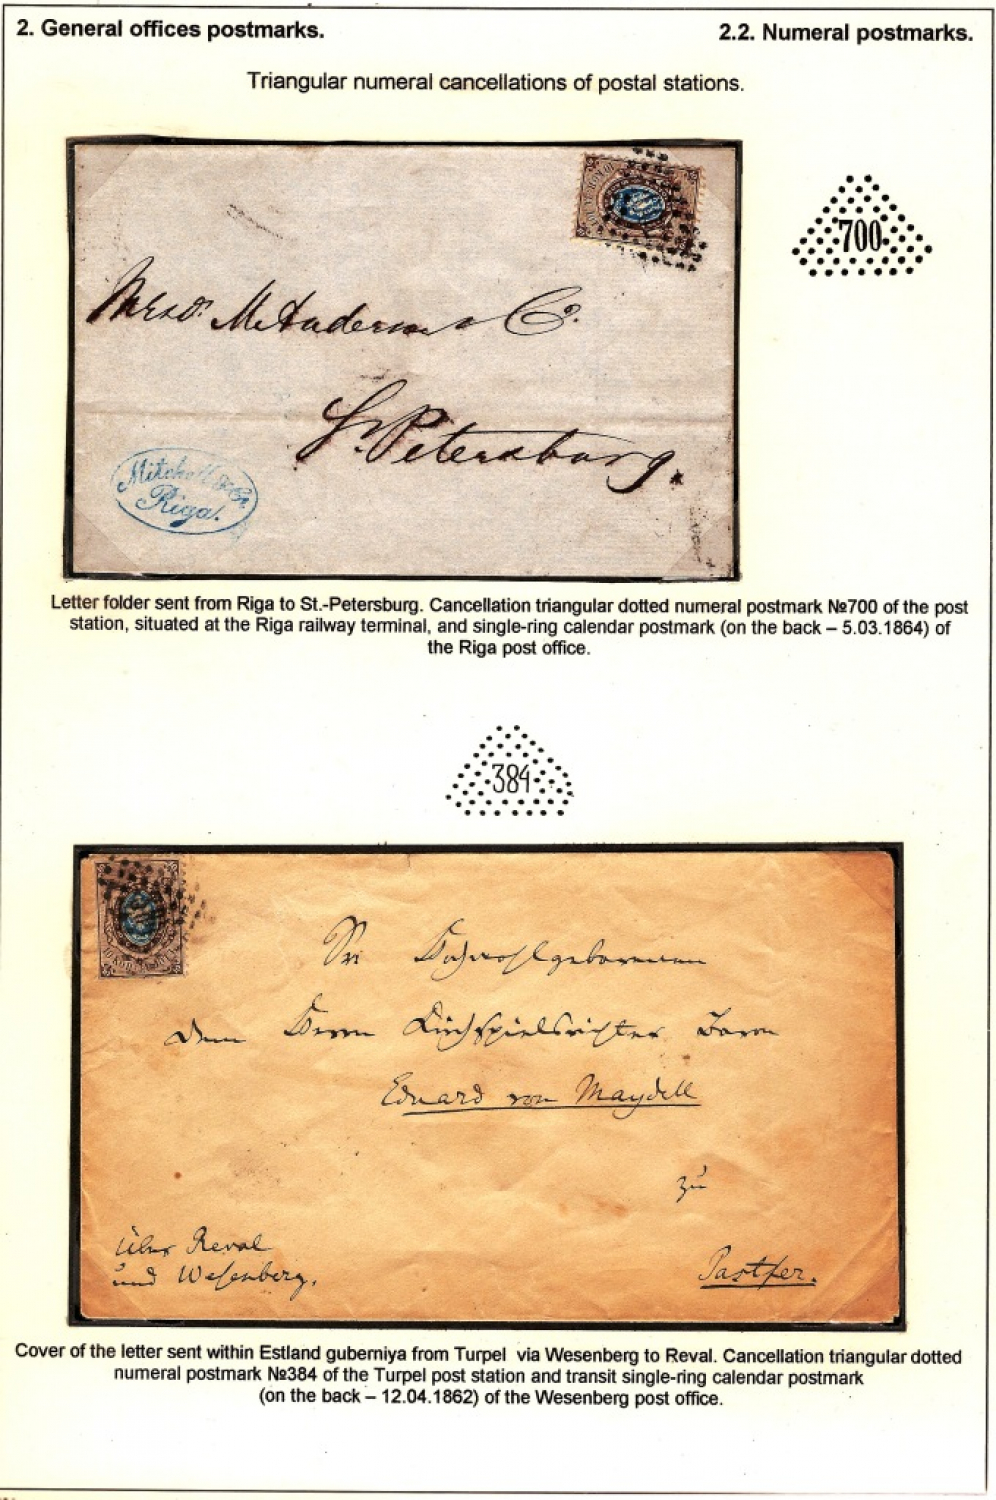 2. General offices postmarks.
2.2. Numeral postmarks.
Triangular numeral cancellations of postal stations.
700
Messrs. M. Anderson & Co.
St. Petersburg.
Mitchell & Co.
Riga.
Letter folder sent from Riga to St.-Petersburg. Cancellation triangular dotted numeral postmark №700 of the post
station, situated at the Riga railway terminal, and single-ring calendar postmark (on the back – 5.03.1864) of
the Riga post office.
384
Sr Hochwohlgeboren
dem Herrn Kirchspielsrichter Baron
Eduard von Maydell
zu
Pastfer.
über Reval
und Wesenberg.
Cover of the letter sent within Estland guberniya from Turpel via Wesenberg to Reval. Cancellation triangular dotted
numeral postmark №384 of the Turpel post station and transit single-ring calendar postmark
(on the back – 12.04.1862) of the Wesenberg post office.